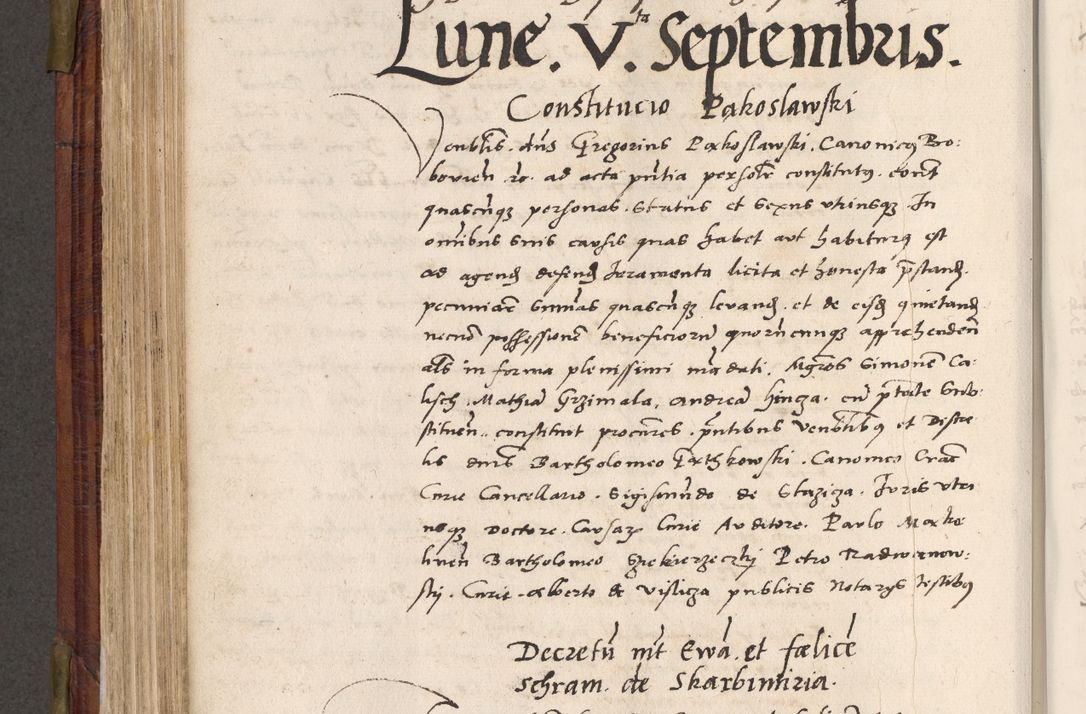 Lune. Vta. Septembris.
Constitucio Pąkoslawski
Venblis. dns Gregorius Pąkoslawski. Canonicus Bo:
bovien. ro. ad acta pntia personlr constitutus. coram
quascunque personas. Status et Sexus utriusque. In
omnibus suis causis quas habet aut habiturus est
ad agend defend Juramenta licita et honesta prestand.
pecuniare summas quascunque levand. et de eisd quietand
necnon possessionem beneficiorum quorumcunque apprehenden
als in forma plenissimi mandati. Mgros Simonem Ca:
lisch. Mathiam Grzimala, Andream hincza. cum ptate Sub:
stituen.. constituit procures. pntibus Venblibus et Discre
tis dnis Bartholomeo Gąthkowski. Canonico Crac
Curie Cancellario. Sigismundo de Stązicza. Juris utri
usque Doctore. Causarum Curie Auditore. Paulo Mąko
linen Bartholomeo Petro Radwanow:
sky. Curie. Alberto de Vislicza publicis Notarys testibus
Decretum int Ewam. et fœlicem
Schram. de Skarbimiria.